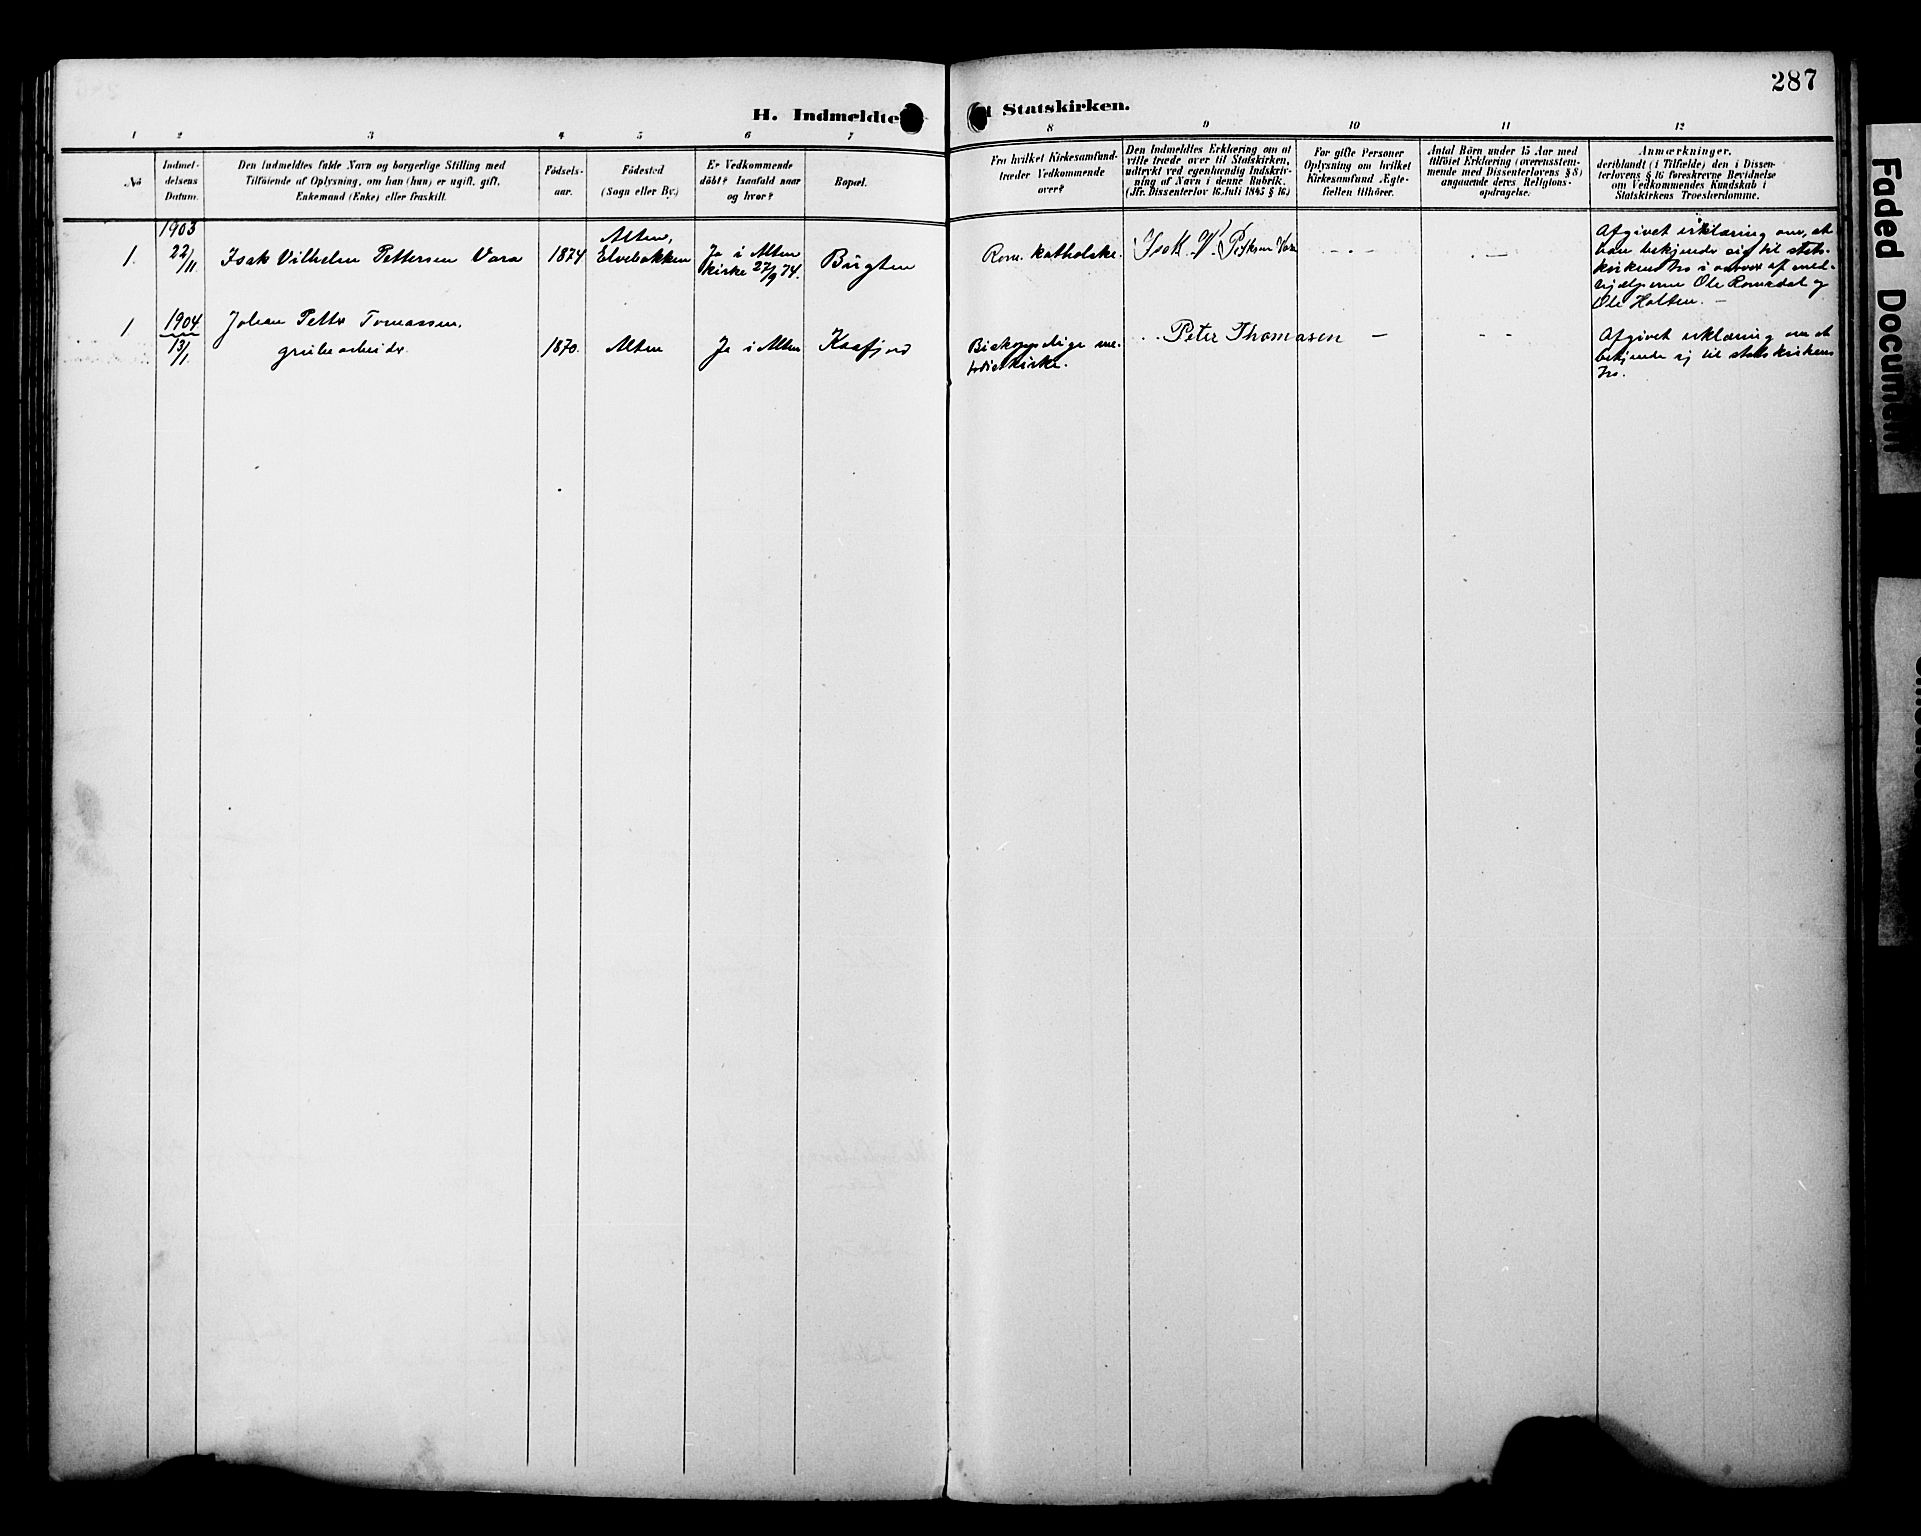 287
H. Indmeldte i Statskirken.
1 2 3 4 5 6 7 8 9 10 11 12
No
Indmel-
delsens
Datum.
Den Indmeldtes fulde Navn og borgerlige Stilling med
Tilföiende af Oplysning, om han (hun) er ugift, gift,
Enkemand (Enke) eller fraskilt.
Födsels-
aar.
Födested
(Sogn eller By.)
Er Vedkommende
döbt? Isaafald naar
og hvor?
Bopæl.
Fra hvilket Kirkesamfund
træder Vedkommende
over?
Den Indmeldtes Erklæring om at
ville træde over til Statskirken,
udtrykt ved egenhændig Indskriv-
ning af Navn i denne Rubrik.
(Jfr. Dissenterlov 16. Juli 1845 § 16)
For gifte Personer
Oplysning om hvilket
Kirkesamfund Ægte-
fællen tilhörer.
Antal Börn under 15 Aar med
tilföiet Erklæring (overensstem-
mende med Dissenterlovens § 8)
angaaende deres Religions-
opdragelse.
Anmærkninger,
deriblandt (i Tilfælde) den i Dissen-
terlovens § 16 foreskrevne Bevidnelse
om Vedkommendes Kundskab i
Statskirkens Troeslærdomme.
1903
1. 22/11
Isak Vilhelm Pettersen Vara
1874
Alten,
Elvebakken
Ja i Alten
kirke 27/9 74.
Bugten
Rom. katholske.
Isak V. Pettersen Vara
- . -
. —
Afgivet erklæring om, at
han bekjender sig til stats-
kirkens tro i nærvær af med-
hjælperne Ole Romsdal og
Ole Holten. —
1 1904
13/1.
Johan Petter Tomassen,
grubearbeider
1870.
Alten
Ja i Alten
Kaafjord
Biskoppelige me-
todistkirke.
Peter Thomasen
-
- -
Afgivet erklæring om at
bekjende sig til statskirkens
tro.
Faded Document